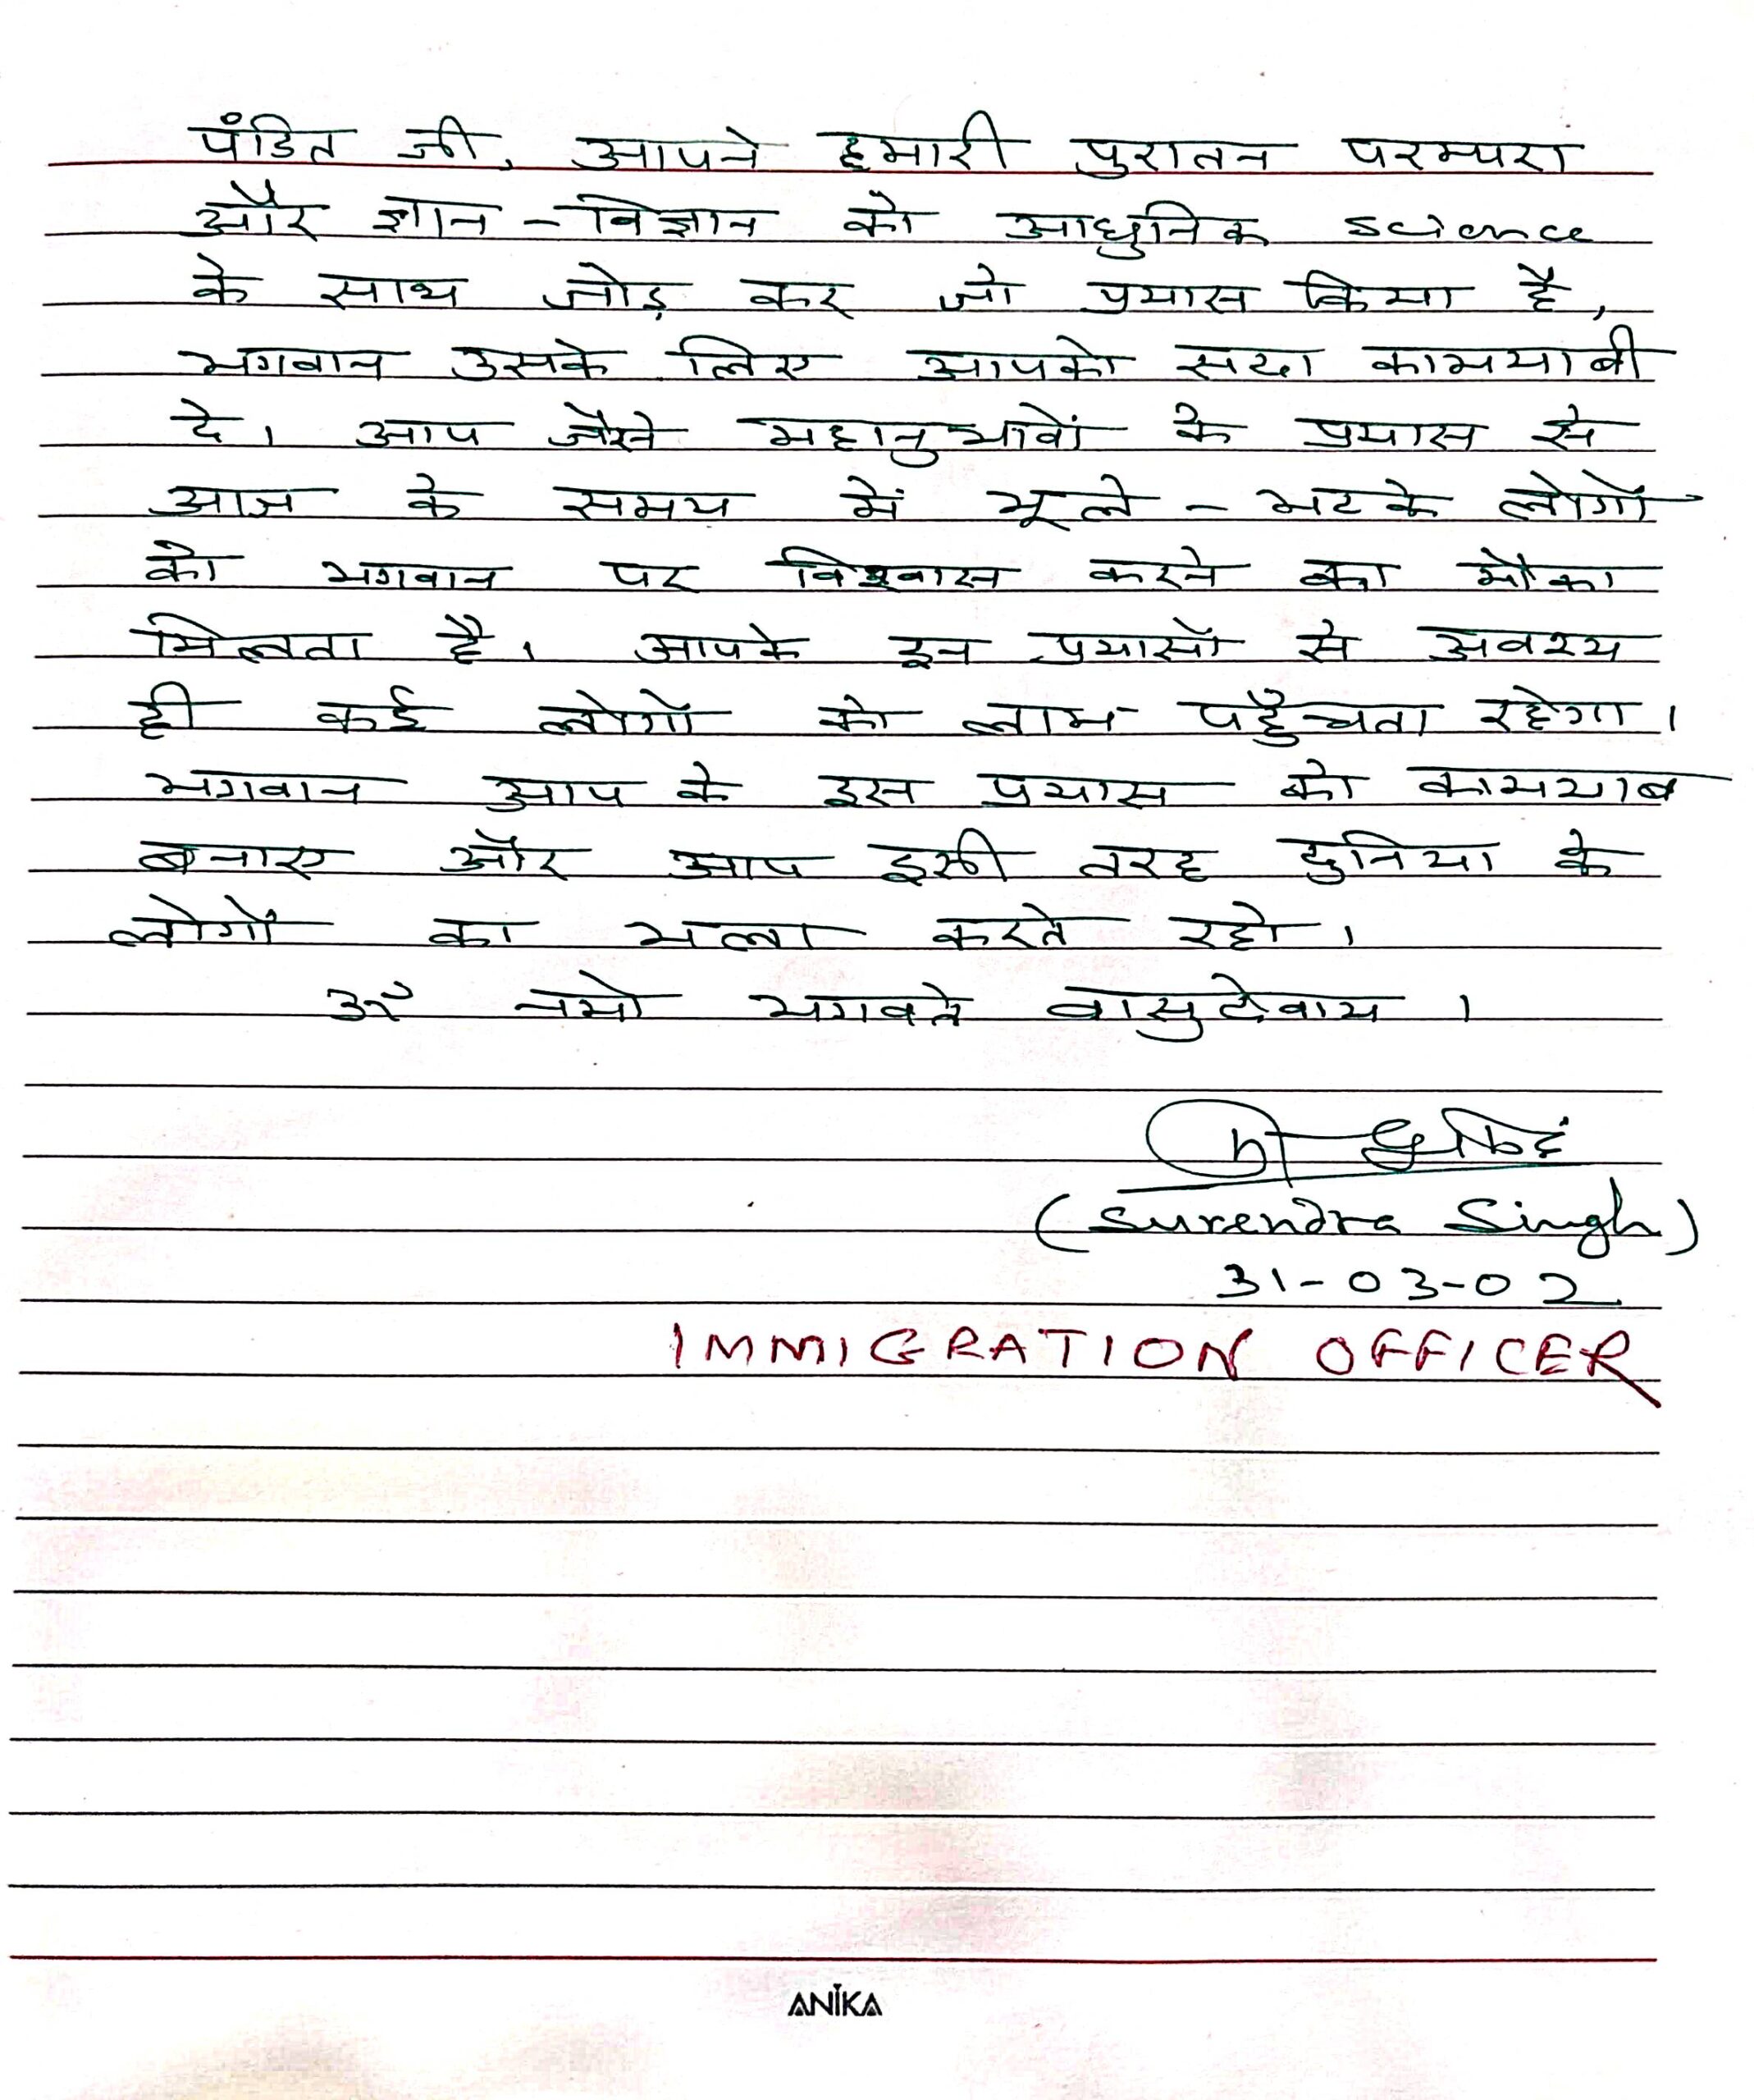 पंडित जी, आपने हमारी पुरातन परम्परा
और ज्ञान - विज्ञान को आधुनिक science
के साथ जोड़ कर जो प्रयास किया है,
भगवान उसके लिए आपको सदा कामयाबी
दे। आप जैसे महानुभावों के प्रयास से
आज के समय में भूले - भटके लोगों
को भगवान पर विश्वास करने का मौका
मिलता है। आपके इन प्रयासों से अवश्य
ही कई लोगों को लाभ पहुँचता रहेगा।
भगवान आप के इस प्रयास को कामयाब
बनाए और आप इसी तरह दुनिया के
लोगों का भला करते रहो।
ॐ नमो भगवते वासुदेवाय ।
(Surendra Singh)
31-03-02
IMMIGRATION OFFICER
ANIKA